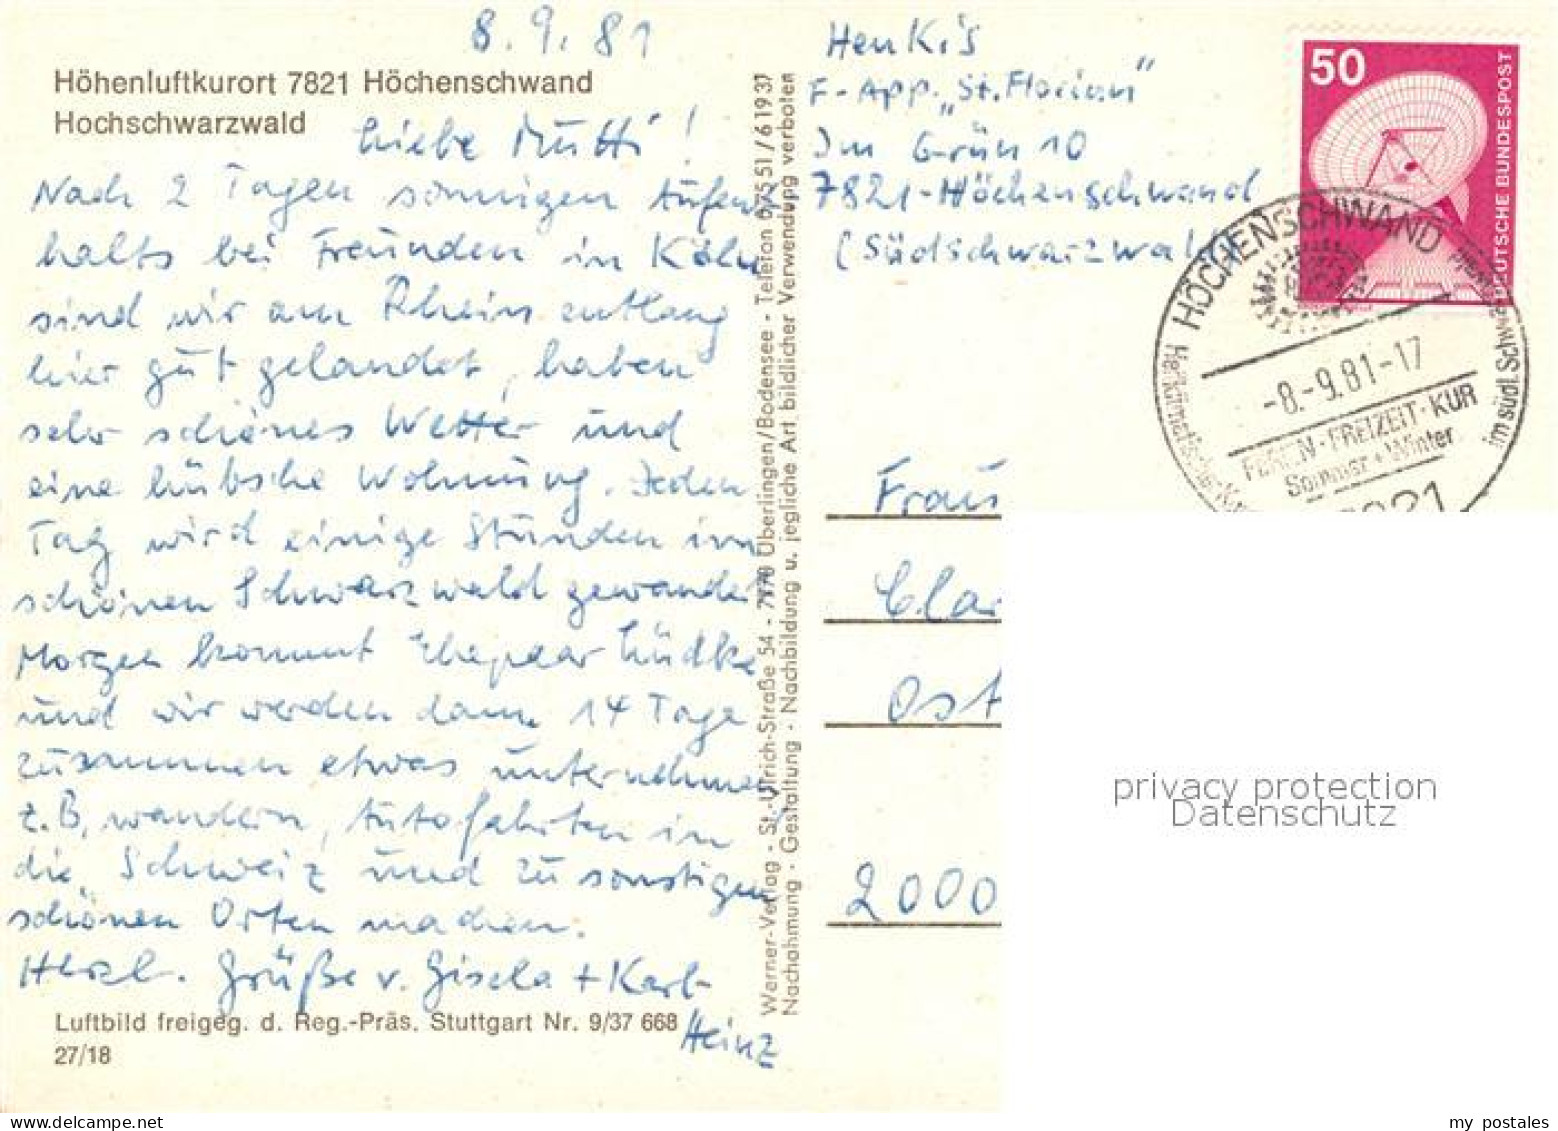 8.9.81
Höhenluftkurort 7821 Höchenschwand
Hochschwarzwald
Liebe Mutti!
Nach 2 Tagen sonnigen Aufent
halts bei Freunden in Köln
sind wir am Rhein entlang
hier gut gelandet, haben
sehr schönes Wetter und
eine hübsche Wohnung. Jeden
Tag wird einige Stunden im
schönen Schwarzwald gewandert
Morgen kommt Ehepaar Lüdke
und wir werden dann 14 Tage
zusammen etwas unternehmen
z.B. wandern, Autofahrten in
die Schweiz und zu sonstigen
schönen Orten machen.
Herzl. Grüße v. Gisela + Karl-
Heinz
Luftbild freigeg. d. Reg.-Präs. Stuttgart Nr. 9/37 668
27/18
Werner-Verlag · St.-Ulrich-Straße 54 - 7770 Überlingen/Bodensee - Telefon 07551/61937
Nachahmung · Gestaltung · Nachbildung u. jegliche Art bildlicher Verwendung verboten
F-App. „St. Florian"
Im Grün 10
7821-Höchenschwand
(Südschwarzwald)
50
DEUTSCHE BUNDESPOST
HÖCHENSCHWAND
-8.-9.81-17
FERIEN·FREIZEIT·KUR
Sommer + Winter
Heilklimatischer
im südl. Schw
7821
Frau
Clar
Ost
2000
privacy protection
Datenschutz
my postales